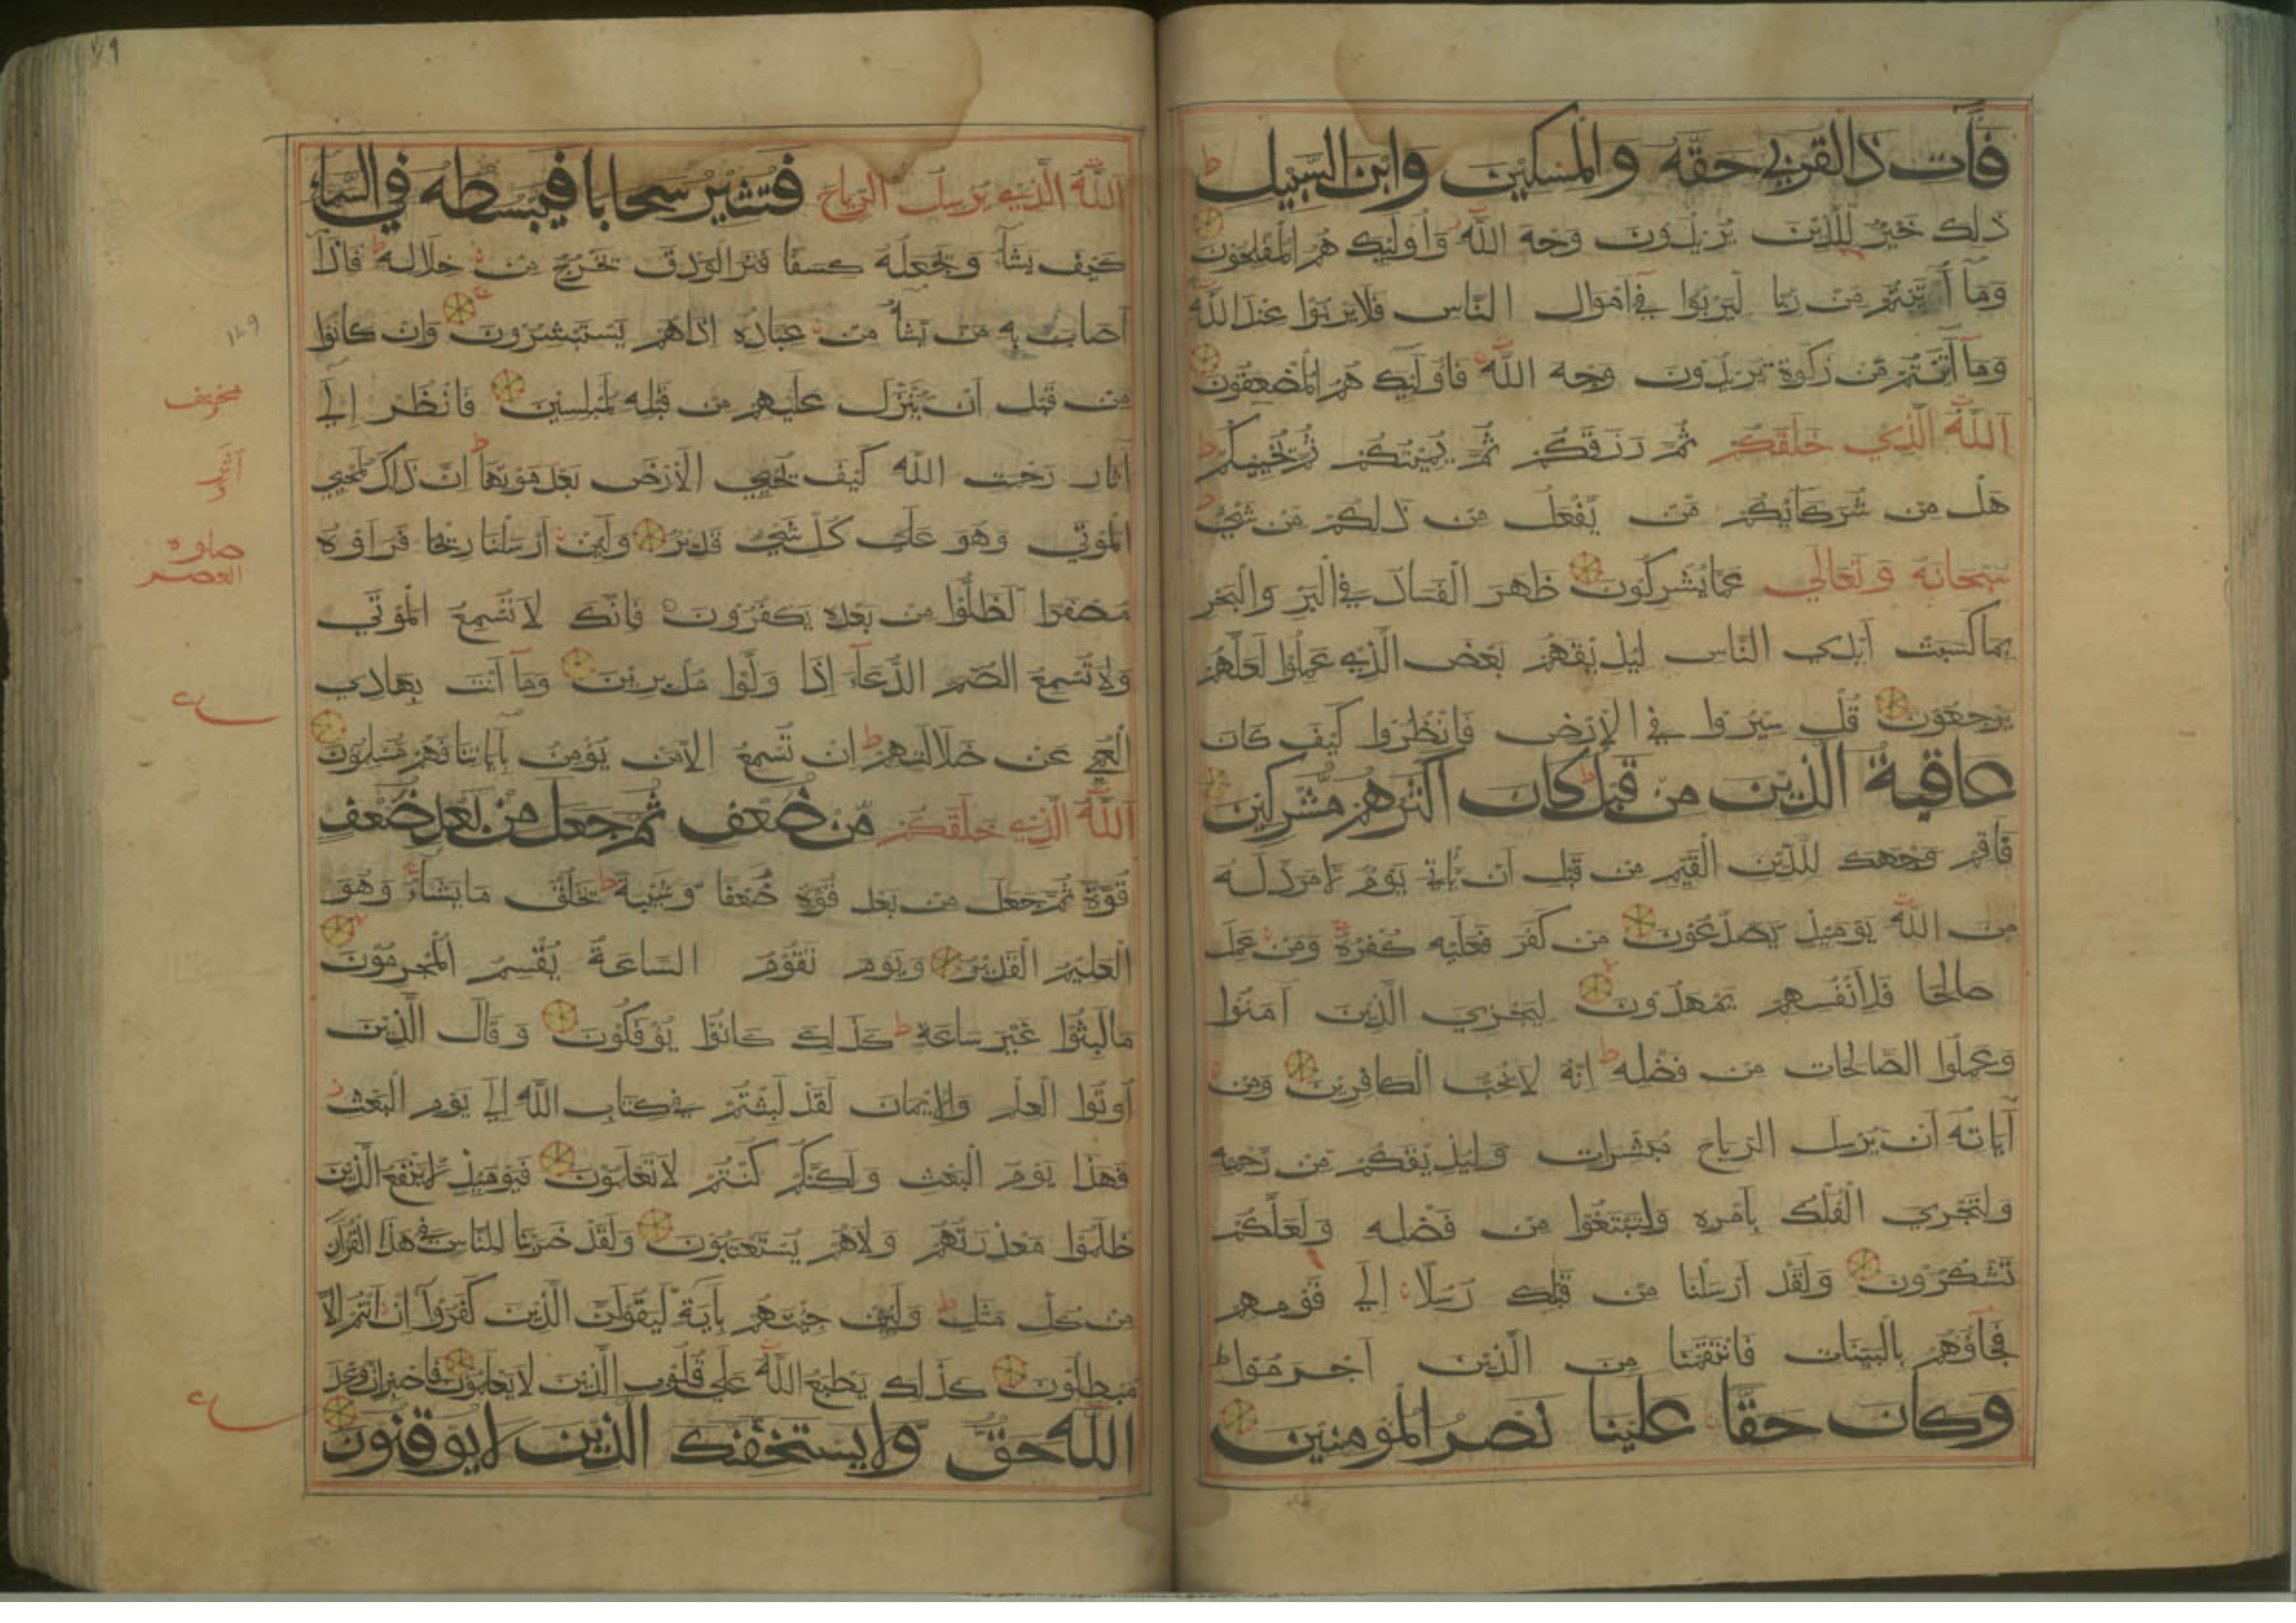 فَآتِ ذَا الْقُرْبَى حَقَّهُ وَالْمِسْكِينَ وَابْنَ السَّبِيلِ ط
ذَلِكَ خَيْرٌ لِلَّذِينَ يُرِيدُونَ وَجْهَ اللَّهِ وَأُولَئِكَ هُمُ الْمُفْلِحُونَ
وَمَا آتَيْتُمْ مِنْ رِبًا لِيَرْبُوَا فِي أَمْوَالِ النَّاسِ فَلَا يَرْبُوا عِنْدَ اللَّهِ
وَمَا آتَيْتُمْ مِنْ زَكَوةٍ تُرِيدُونَ وَجْهَ اللَّهِ فَأُولَئِكَ هُمُ الْمُضْعِفُونَ
اللَّهُ الَّذِي خَلَقَكُمْ ثُمَّ رَزَقَكُمْ ثُمَّ يُمِيتُكُمْ ثُمَّ يُحْيِيكُمْ ط
هَلْ مِنْ شُرَكَائِكُمْ مَنْ يَفْعَلُ مِنْ ذَلِكُمْ مِنْ شَيْءٍ ط
سُبْحَانَهُ وَتَعَالَى عَمَّا يُشْرِكُونَ ظَهَرَ الْفَسَادُ فِي الْبَرِّ وَالْبَحْرِ
بِمَا كَسَبَتْ أَيْدِي النَّاسِ لِيُذِيقَهُمْ بَعْضَ الَّذِي عَمِلُوا لَعَلَّهُمْ
يَرْجِعُونَ قُلْ سِيرُوا فِي الْأَرْضِ فَانْظُرُوا كَيْفَ كَانَ
عَاقِبَةُ الَّذِينَ مِنْ قَبْلُ ط كَانَ أَكْثَرُهُمْ مُشْرِكِينَ
فَأَقِمْ وَجْهَكَ لِلدِّينِ الْقَيِّمِ مِنْ قَبْلِ أَنْ يَأْتِيَ يَوْمٌ لَا مَرَدَّ لَهُ
مِنَ اللَّهِ يَوْمَئِذٍ يَصَّدَّعُونَ مَنْ كَفَرَ فَعَلَيْهِ كُفْرُهُ وَمَنْ عَمِلَ
صَالِحًا فَلِأَنْفُسِهِمْ يَمْهَدُونَ لِيَجْزِيَ الَّذِينَ آمَنُوا
وَعَمِلُوا الصَّالِحَاتِ مِنْ فَضْلِهِ ط إِنَّهُ لَا يُحِبُّ الْكَافِرِينَ وَمِنْ
آيَاتِهِ أَنْ يُرْسِلَ الرِّيَاحَ مُبَشِّرَاتٍ وَلِيُذِيقَكُمْ مِنْ رَحْمَتِهِ
وَلِتَجْرِيَ الْفُلْكُ بِأَمْرِهِ وَلِتَبْتَغُوا مِنْ فَضْلِهِ وَلَعَلَّكُمْ
تَشْكُرُونَ وَلَقَدْ أَرْسَلْنَا مِنْ قَبْلِكَ رُسُلًا إِلَى قَوْمِهِمْ
فَجَاؤُهُمْ بِالْبَيِّنَاتِ فَانْتَقَمْنَا مِنَ الَّذِينَ أَجْرَمُوا ط
وَكَانَ حَقًّا عَلَيْنَا نَصْرُ الْمُؤْمِنِينَ
اللَّهُ الَّذِي يُرْسِلُ الرِّيَاحَ فَتُثِيرُ سَحَابًا فَيَبْسُطُهُ فِي السَّمَاءِ
كَيْفَ يَشَاءُ وَيَجْعَلُهُ كِسَفًا فَتَرَى الْوَدْقَ يَخْرُجُ مِنْ خِلَالِهِ ط فَإِذَا
أَصَابَ بِهِ مَنْ يَشَاءُ مِنْ عِبَادِهِ إِذَا هُمْ يَسْتَبْشِرُونَ وَإِنْ كَانُوا
مِنْ قَبْلِ أَنْ يُنَزَّلَ عَلَيْهِمْ مِنْ قَبْلِهِ لَمُبْلِسِينَ فَانْظُرْ إِلَى
آثَارِ رَحْمَتِ اللَّهِ كَيْفَ يُحْيِي الْأَرْضَ بَعْدَ مَوْتِهَا ط إِنَّ ذَلِكَ لَمُحْيِي
الْمَوْتَى وَهُوَ عَلَى كُلِّ شَيْءٍ قَدِيرٌ وَلَئِنْ أَرْسَلْنَا رِيحًا فَرَأَوْهُ
مُصْفَرًّا لَظَلُّوا مِنْ بَعْدِهِ يَكْفُرُونَ فَإِنَّكَ لَا تُسْمِعُ الْمَوْتَى
وَلَا تُسْمِعُ الصُّمَّ الدُّعَاءَ إِذَا وَلَّوْا مُدْبِرِينَ وَمَا أَنْتَ بِهَادِي
الْعُمْيِ عَنْ ضَلَالَتِهِمْ ط إِنْ تُسْمِعُ إِلَّا مَنْ يُؤْمِنُ بِآيَاتِنَا فَهُمْ مُسْلِمُونَ
اللَّهُ الَّذِي خَلَقَكُمْ مِنْ ضُعْفٍ ثُمَّ جَعَلَ مِنْ بَعْدِ ضُعْفٍ
قُوَّةً ثُمَّ جَعَلَ مِنْ بَعْدِ قُوَّةٍ ضُعْفًا وَشَيْبَةً ط يَخْلُقُ مَا يَشَاءُ وَهُوَ
الْعَلِيمُ الْقَدِيرُ وَيَوْمَ تَقُومُ السَّاعَةُ يُقْسِمُ الْمُجْرِمُونَ
مَا لَبِثُوا غَيْرَ سَاعَةٍ ط كَذَلِكَ كَانُوا يُؤْفَكُونَ وَقَالَ الَّذِينَ
أُوتُوا الْعِلْمَ وَالْإِيمَانَ لَقَدْ لَبِثْتُمْ فِي كِتَابِ اللَّهِ إِلَى يَوْمِ الْبَعْثِ
فَهَذَا يَوْمُ الْبَعْثِ وَلَكِنَّكُمْ كُنْتُمْ لَا تَعْلَمُونَ فَيَوْمَئِذٍ لَا يَنْفَعُ الَّذِينَ
ظَلَمُوا مَعْذِرَتُهُمْ وَلَا هُمْ يُسْتَعْتَبُونَ وَلَقَدْ ضَرَبْنَا لِلنَّاسِ فِي هَذَا الْقُرْآنِ
مِنْ كُلِّ مَثَلٍ ط وَلَئِنْ جِئْتَهُمْ بِآيَةٍ لَيَقُولَنَّ الَّذِينَ كَفَرُوا إِنْ أَنْتُمْ إِلَّا
مُبْطِلُونَ كَذَلِكَ يَطْبَعُ اللَّهُ عَلَى قُلُوبِ الَّذِينَ لَا يَعْلَمُونَ فَاصْبِرْ إِنَّ وَعْدَ
اللَّهِ حَقٌّ وَلَا يَسْتَخِفَّنَّكَ الَّذِينَ لَا يُوقِنُونَ
العصر